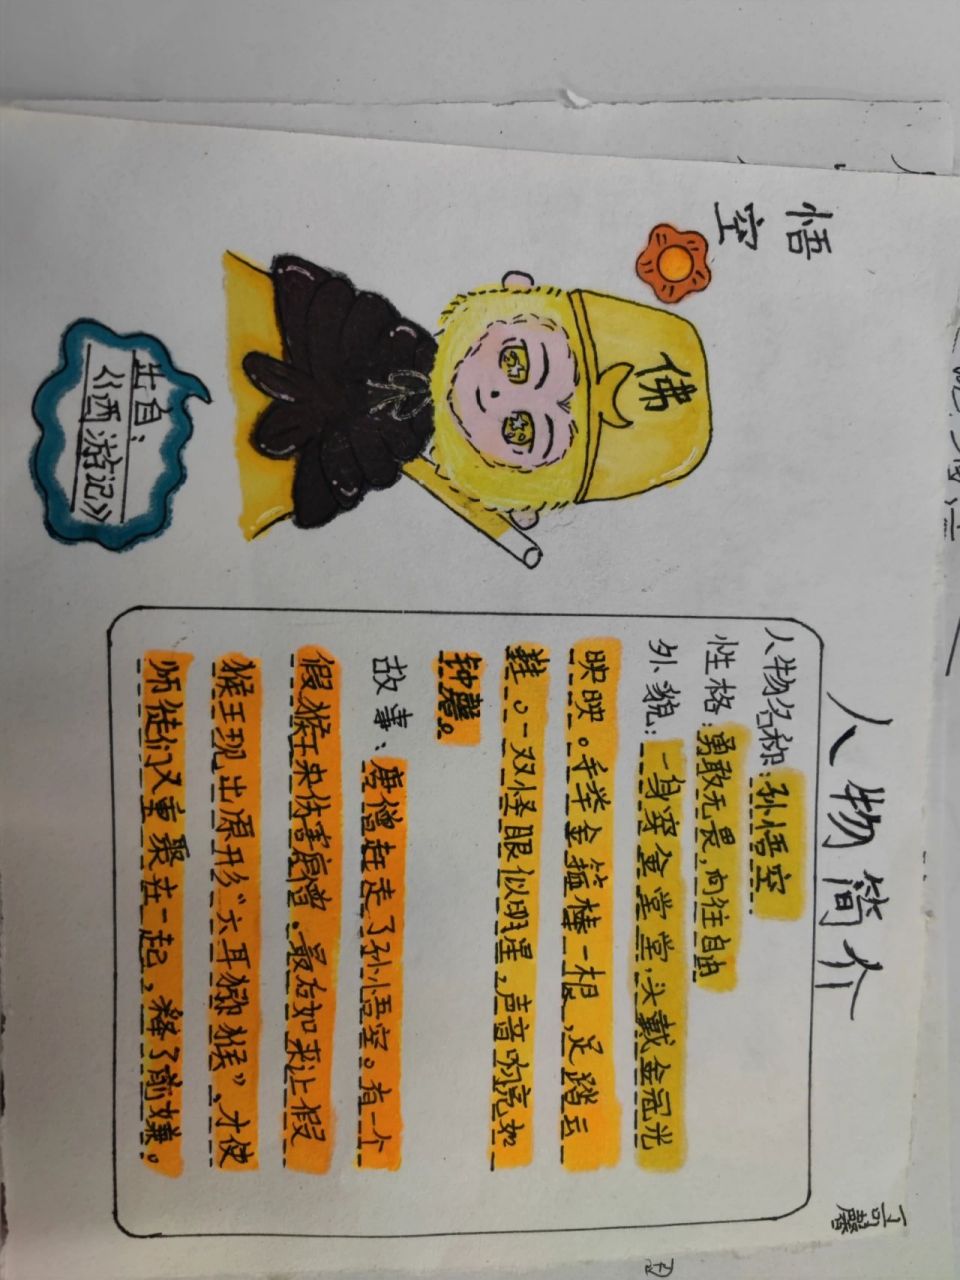 悟
空
佛
出自：
《西游记》
人物简介
人物名称：孙悟空
性格：勇敢无畏，向往自由
外貌：一身穿金堂堂，头戴金冠光
映映。手举金箍棒一根，足踏云
鞋。一双怪眼似明星，声音响亮如
钟磬。
故事：唐僧赶走了孙悟空。有一个
假猴王来伤害唐僧，最后如来让假
猴王现出原形“六耳猕猴”，才使
师徒们又重聚在一起，释了前嫌。